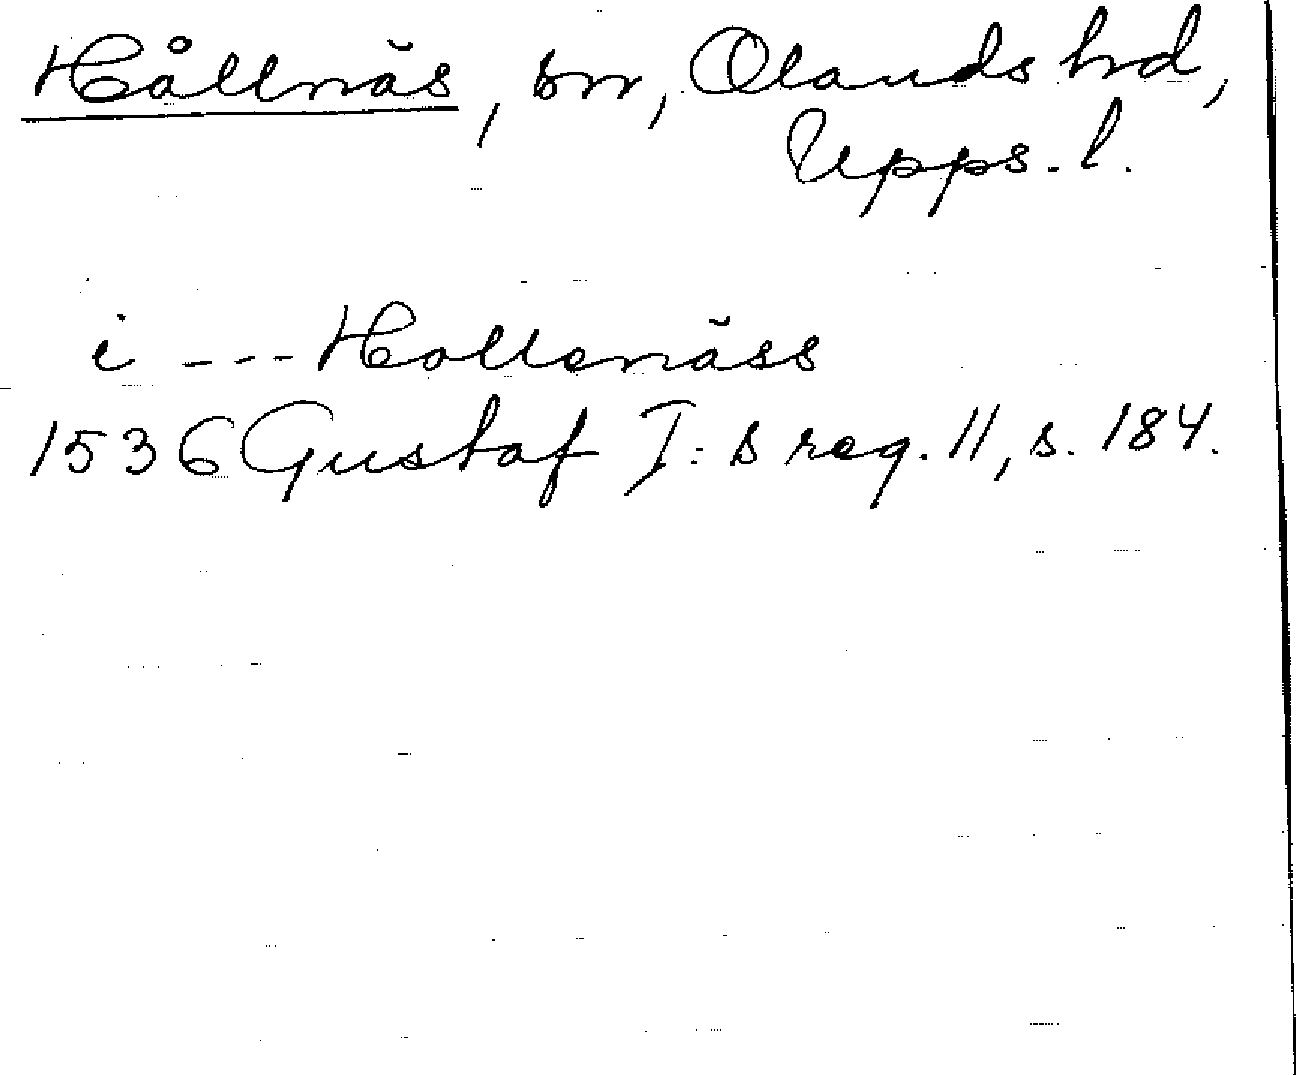 Hållnäs, sn, Olands hrd,
Upps. l.
i --- Hollenäss
1536 Gustaf I:s reg. 11, s. 184.